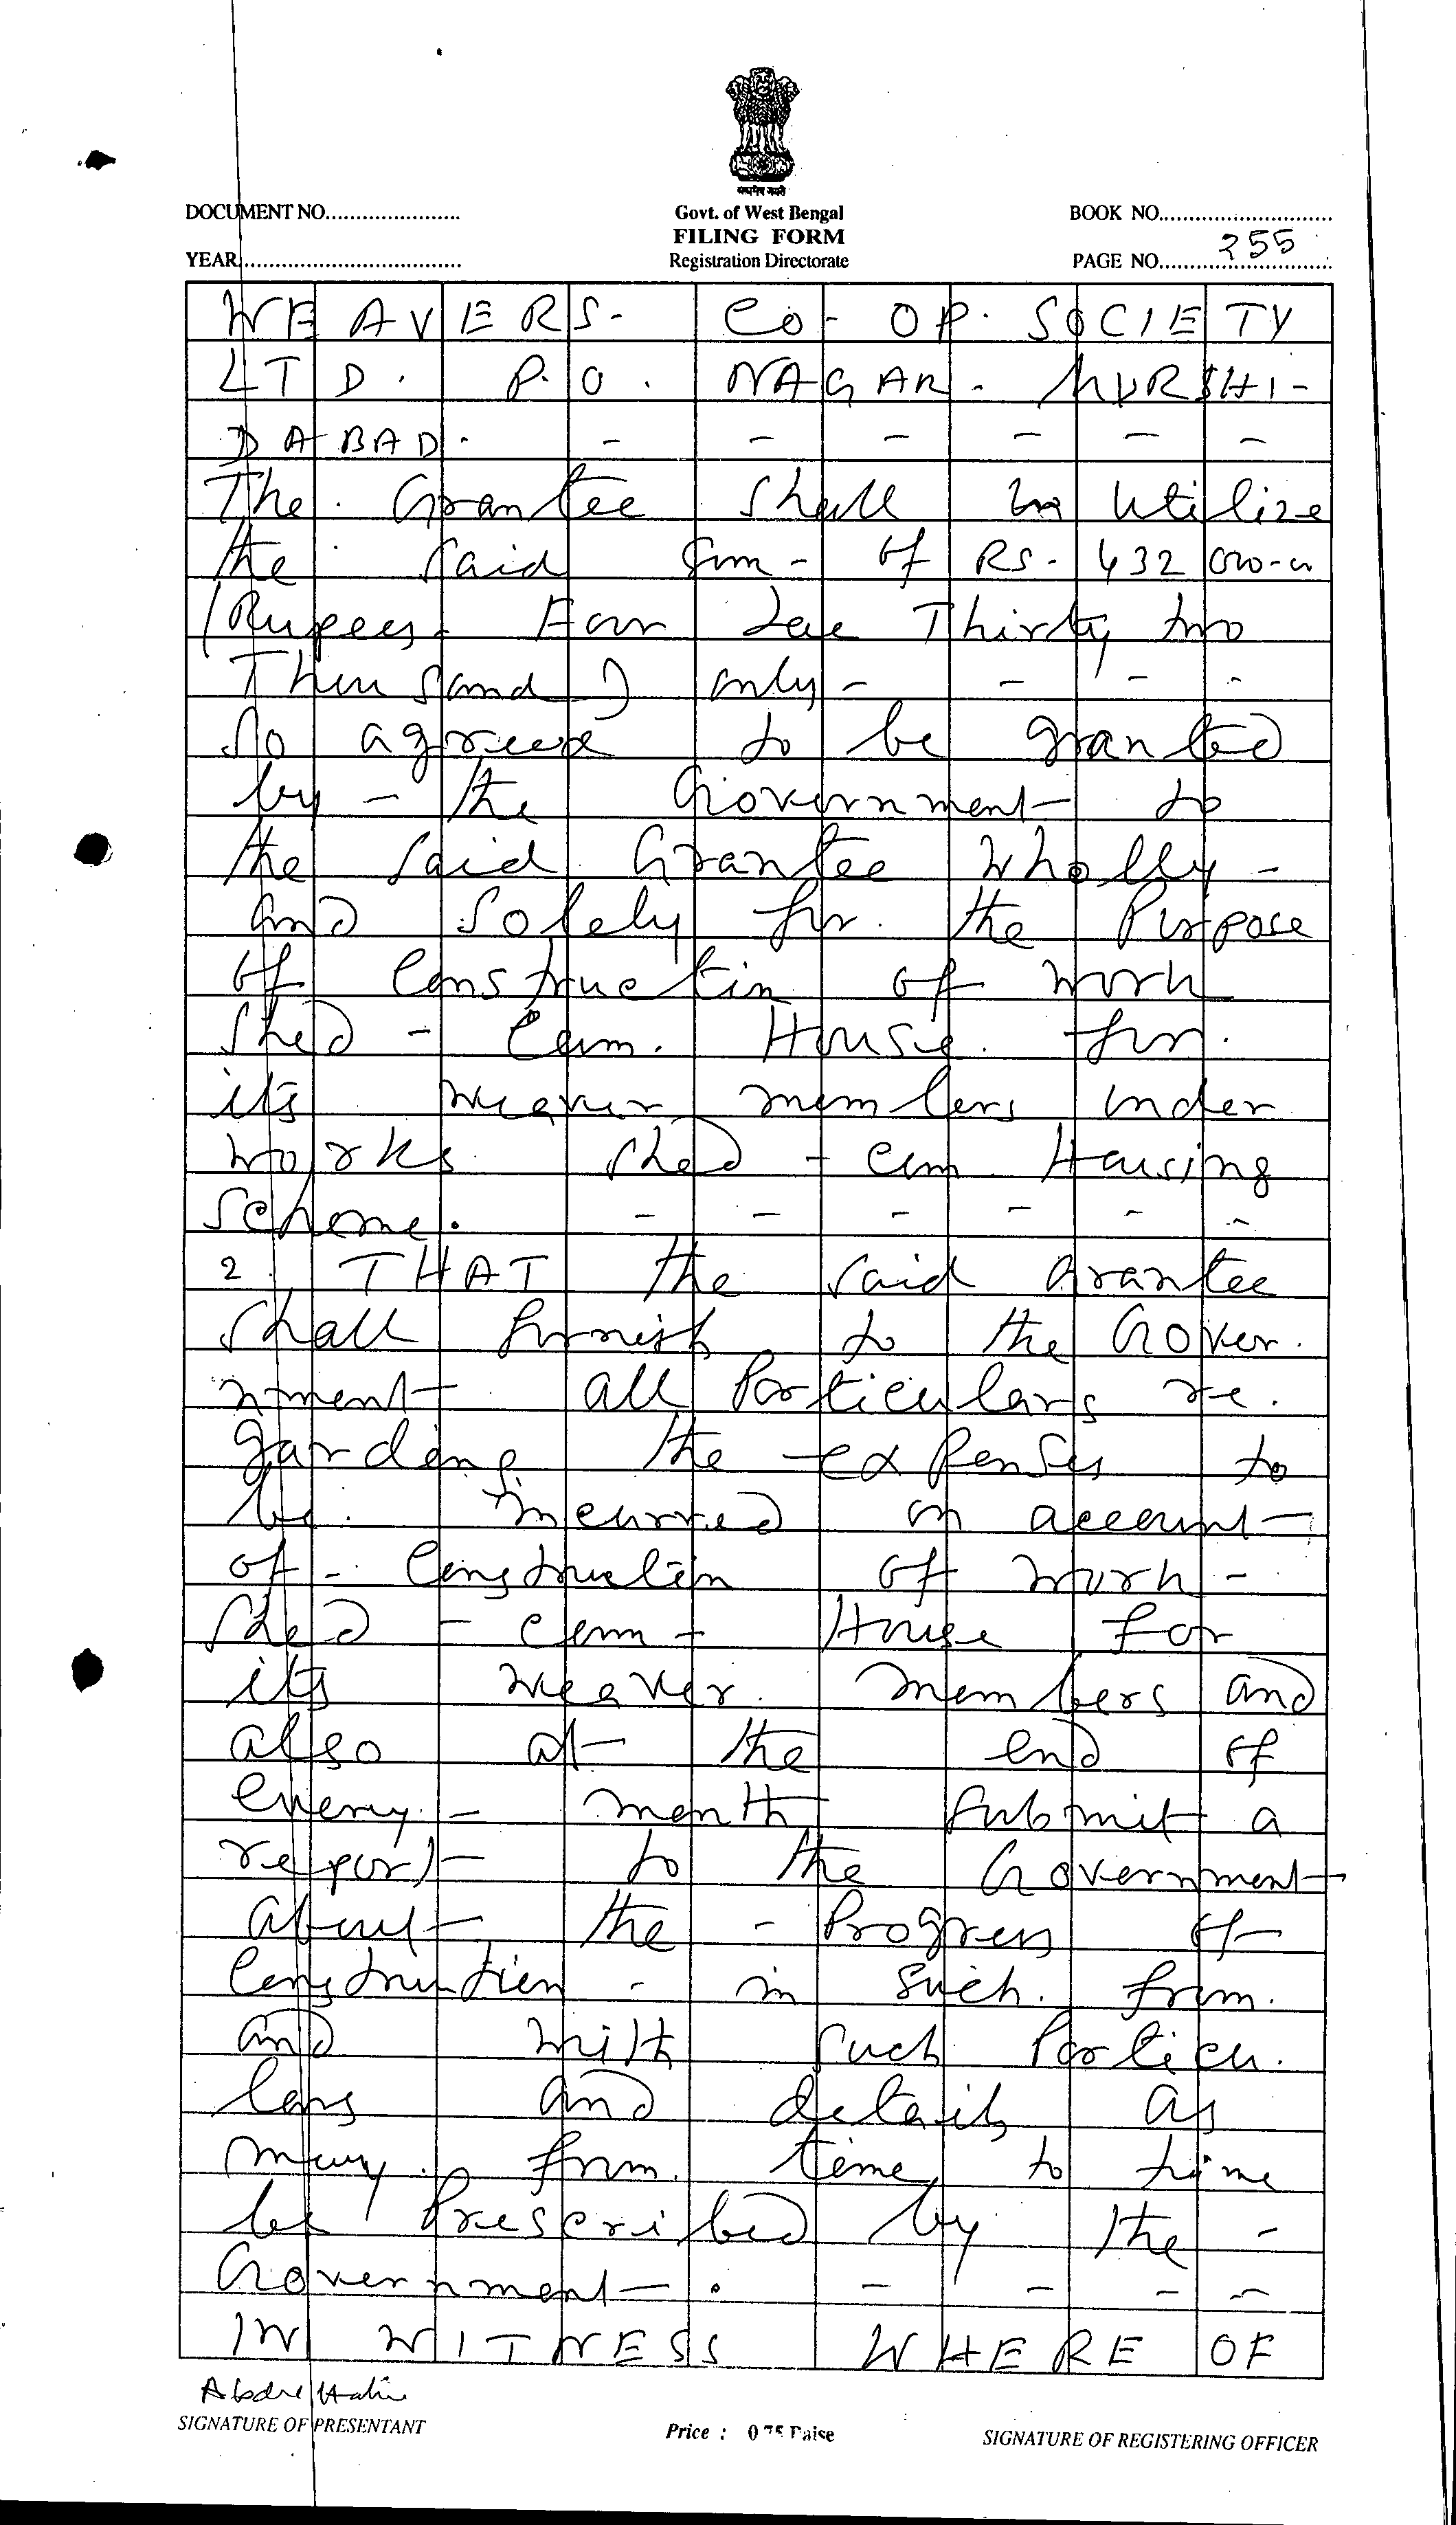 सत्यमेव जयते
DOCUMENT NO...................... Govt. of West Bengal BOOK NO............................
FILING FORM
YEAR.................................... Registration Directorate PAGE NO. 255
WEAVERS- CO- OP. SOCIETY
LTD. P.O. NAGAR- MURSHI-
DABAD. - - - - - -
The Grantee shall utilize
the said sum- of RS- 432 000-00
(Rupees- Four Lac Thirty two
Thousand) only- - - -
so agreed to be granted
by- the Government to
the said Grantee wholly-
and solely for the Purpose
of Construction of work
shed - Cum. House for.
its weaver members under
works shed - cum Housing
Scheme. - - - - - -
2. THAT the said Grantee
shall furnish to the Gover.
nment all Particulars re.
garding the expenses to
be incurred on account
of- Construction of work-
shed - cum- House for
its weaver members and
also at the end of
every- month submit a
report to the Government
about the - Progress of
Construction - in such form.
and with such Particu.
lars and details as
may from time to time
be Prescribed by the -
Government. - - - -
IN WITNESS WHERE OF
SIGNATURE OF PRESENTANT Price : 0.75 Paise SIGNATURE OF REGISTERING OFFICER